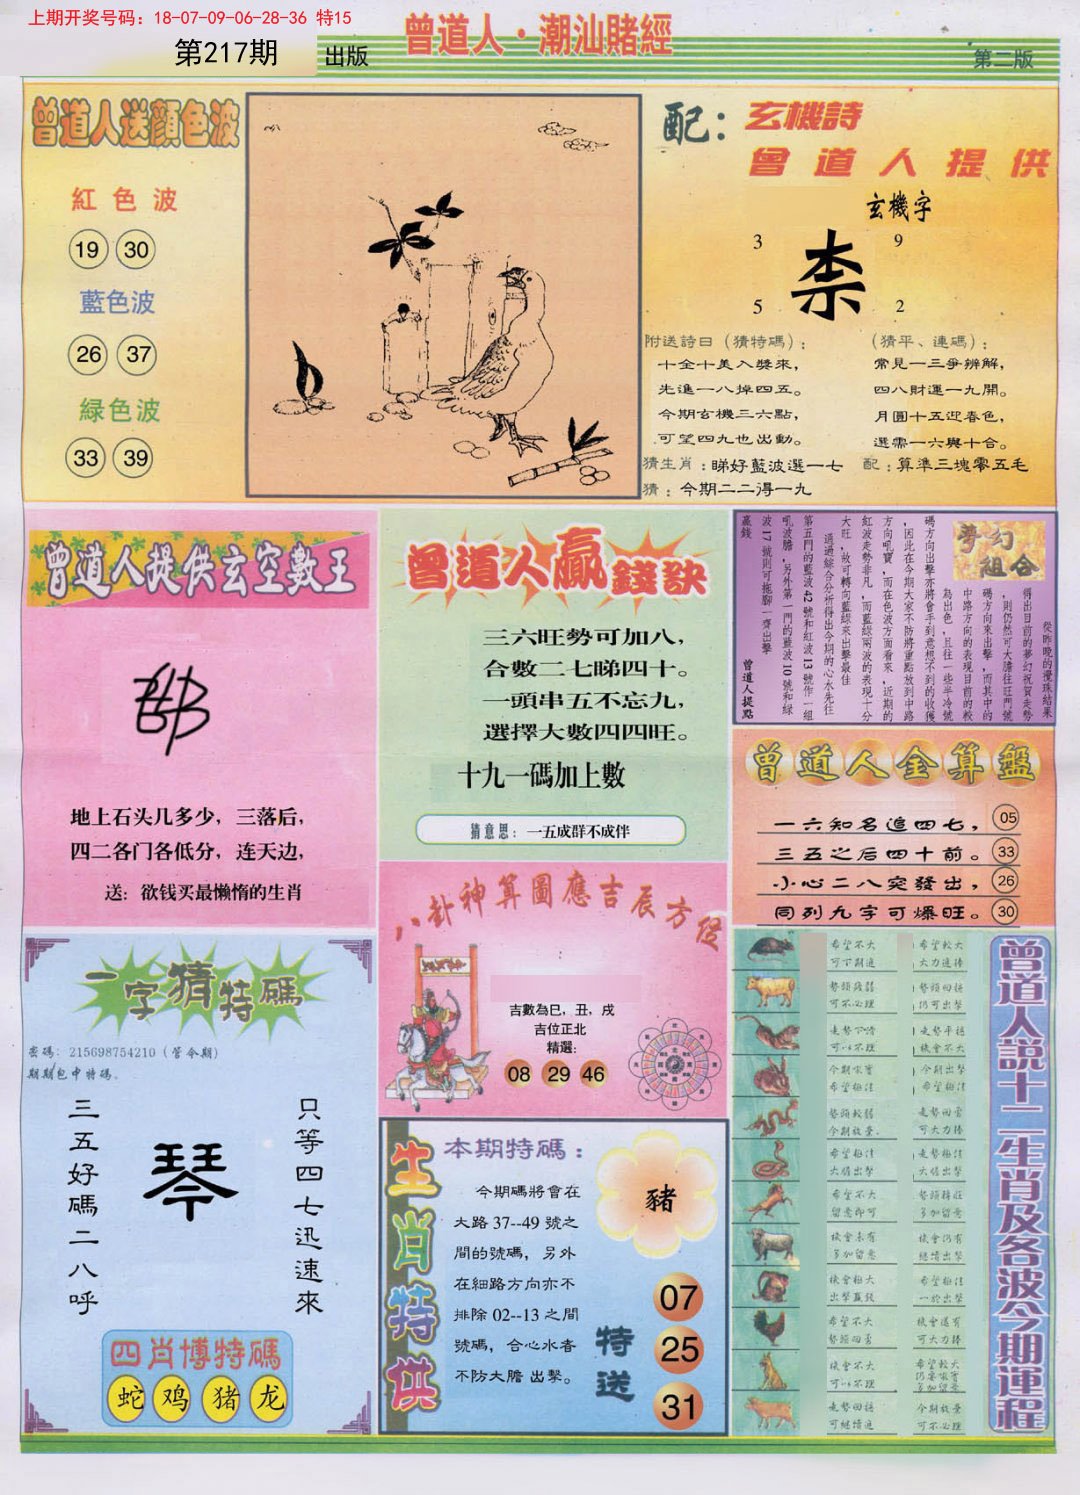 上期开奖号码：18-07-09-06-28-36 特15
第217期
出版
曾道人·潮汕賭經
第二版
曾道人送顏色波
紅色波
19 30
藍色波
26 37
緑色波
33 39
配：玄機詩
曾道人提供
玄機字
3 9
5 2
柰
附送詩曰（猜特碼）：
十全十美入獎來，
先進一八掉四五。
今期玄機三六點，
可望四九也出動。
（猜平、連碼）：
常見一三爭辨解，
四八財運一九開。
月圓十五迎春色，
選需一六與十合。
猜生肖：睇好藍波選一七
配：算準三塊零五毛
猜：今期二二得一九
曾道人提供玄空數王
地上石头几多少，三落后，
四二各门各低分，连天边，
送：欲钱买最懒惰的生肖
曾道人贏錢訣
三六旺勢可加八，
合數二七睇四十。
一頭串五不忘九，
選擇大數四四旺。
十九一碼加上數
猜意思：一五成群不成伴
夢幻組合
從昨晚的攪珠結果
得出目前的夢幻祝賀走勢
，則仍然可大膽往旺門號
碼方向來出擊，而其中的
中路方向的表現目前的較
為出色，且往一些半冷號
碼方向出擊亦將會手到意想不到的收獲
，因此在今期大家不防將重點放到中路
方向吼寶，而在色波方面看來，近期的
紅波走勢非凡，而藍綠兩波的表現十分
大旺，故可轉向藍綠來出擊最佳
通過綜合分析得出今期的心水先往
第五門的藍波42號和紅波13號作一組
吼波膽，另外第一門的藍波10號和綠
波17號則可拖腳一齊出擊
贏錢
曾道人提點
曾道人金算盤
一六知名追四七，05
三五之后四十前。33
小心二八突發出，26
同列九字可爆旺。30
八卦神算圖應吉辰方位
吉數為巳，丑，戌
吉位正北
精選：
08 29 46
一字猜特碼
密碼：215698754210（管令期）
期期包中特碼。
三五好碼二八呼
琴
只等四七迅速來
四肖博特碼
蛇 鸡 猪 龙
生肖特供
本期特碼：
今期碼將會在
大路 37--49 號之
間的號碼，另外
在細路方向亦不
排除 02--13 之間
號碼，合心水者
不防大膽 出擊。
豬
特送
07
25
31
曾道人說十二生肖及各波今期運程
希望不大
希望較大
大力追捧
可不必理
仍可出擊
走勢平穩
機會不大
希望極佳
今期放量。
可大力捧
希望極佳
大膽出擊
走勢極佳
大膽出擊
希望不大
留意即可
多加留意
機會未有
多加留意
機會仍有
繼續出擊
機會極大
出擊贏錢
希望極佳
一於出擊
希望不大
機會還有
可大力捧
機會不大
希望較大
多加留意
走勢回穩
可繼續追
今期放量
可不必理